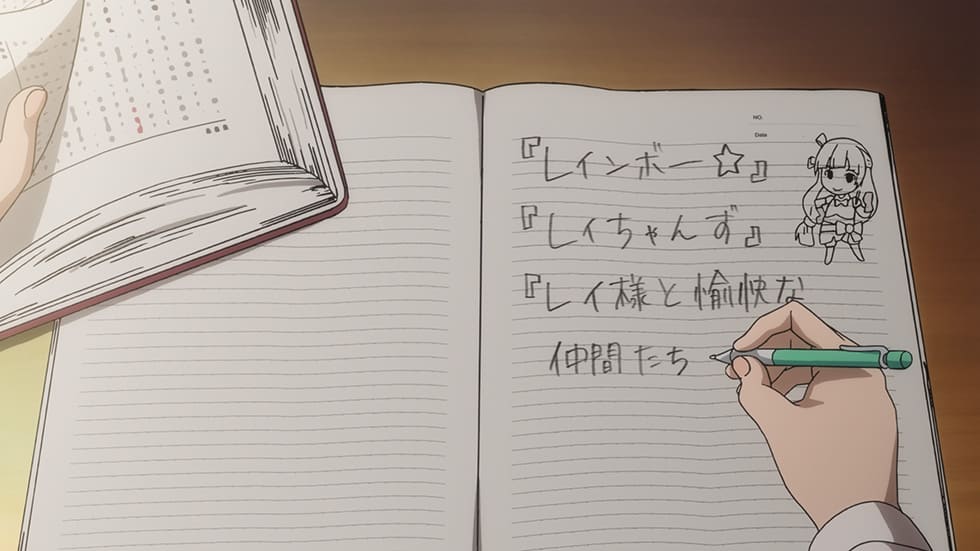 NO.
Date
『レインボー☆』
『レイちゃんず』
『レイ様と愉快な
仲間たち